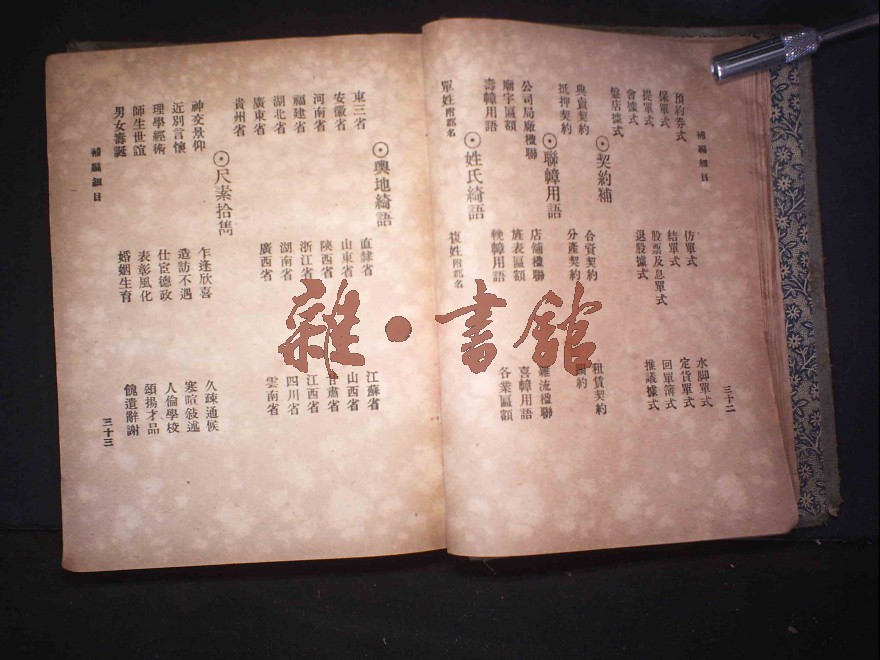 補編細目 三十二
預約券式 仿單式 水脚單式
保單式 結單式 定貨單式
提單式 股票及息單式 回單簿式
會據式 退股據式 推議據式
盤店據式
⊙契約補
典賣契約 合資契約 租賃契約
抵押契約 分產契約 約
⊙聯幛用語
公司局廠楹聯 店鋪楹聯 雜流楹聯
廟宇匾額 旌表匾額 喜幛用語
壽幛用語 輓幛用語 各業匾額
⊙姓氏綺語
單姓附郡名 複姓附郡名
⊙輿地綺語
東三省 直隸省 江蘇省
安徽省 山東省 山西省
河南省 陝西省 甘肅省
福建省 浙江省 江西省
湖北省 湖南省 四川省
廣東省 廣西省 雲南省
貴州省
⊙尺素拾雋
神交景仰 乍逢欣喜 久疎通候
近別言懷 造訪不遇 寒暄敍述
理學經術 仕宦德政 人倫學校
師生世誼 表彰風化 頌揚才品
男女壽誕 婚姻生育 餽遺辭謝
補編細目 三十三
雜·書館